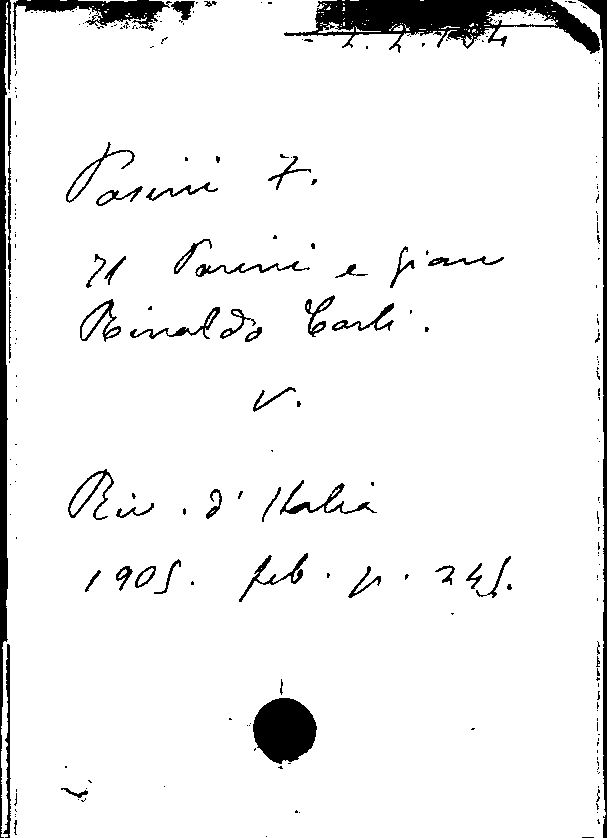 Pasini F.
Il Parini e Gian
Rinaldo Carli.
V.
Riv. d' Italia
1905. feb. p. 245.